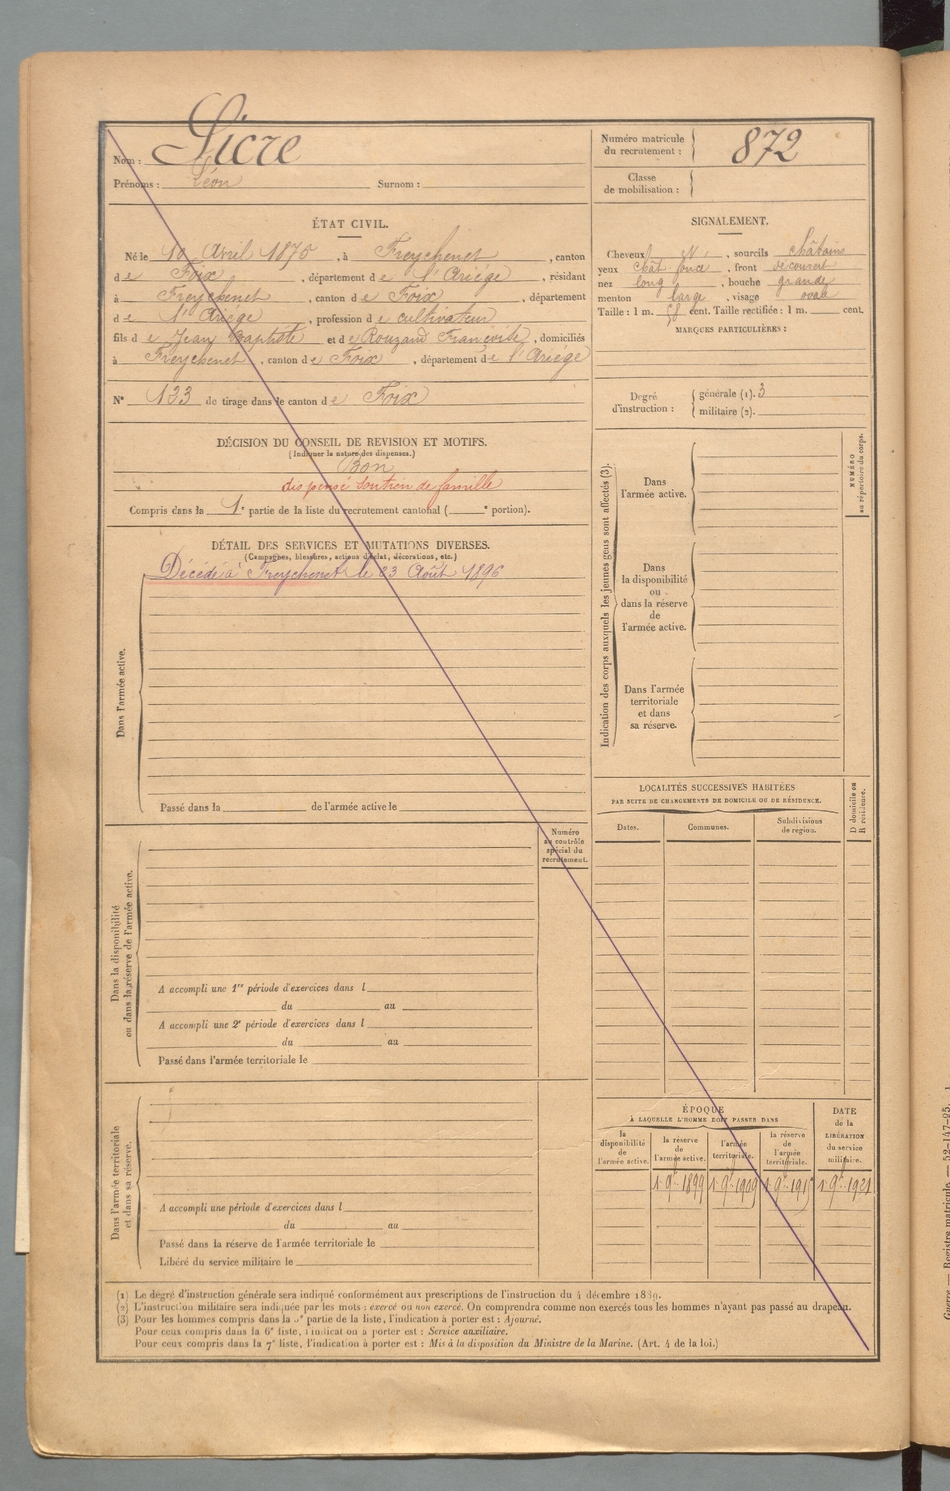 Nom : Sicre
Prénoms : Léon Surnom :
Numéro matricule
du recrutement : 872
Classe
de mobilisation :
ÉTAT CIVIL.
Né le Avril 1875, à Freychenet, canton
de Foix, département de l'Ariège, résidant
à Freychenet, canton de Foix, département
de l'Ariège, profession de cultivateur
fils de Jean Baptiste et de Rouzaud Françoise, domiciliés
à Freychenet, canton de Foix, département de l'Ariège
N° 133 de tirage dans le canton de Foix
SIGNALEMENT.
Cheveux, sourcils châtains
yeux chât. foncé, front découvert
nez long, bouche grande
menton large, visage ovale
Taille : 1 m. 58 cent. Taille rectifiée : 1 m. cent.
MARQUES PARTICULIÈRES :
Degré
d'instruction :
générale (1). 3
militaire (2).
DÉCISION DU CONSEIL DE REVISION ET MOTIFS.
(Indiquer la nature des dispenses.)
Bon
dispensé soutien de famille
Compris dans la 1e partie de la liste du recrutement cantonal ( e portion).
DÉTAIL DES SERVICES ET MUTATIONS DIVERSES.
(Campagnes, blessures, actions d'éclat, décorations, etc.)
Décédé à Freychenet le 23 Août 1896
Dans l'armée active.
Passé dans la de l'armée active le
Numéro
au contrôle
spécial du
recrutement.
Dans la disponibilité
ou dans la réserve de l'armée active.
A accompli une 1re période d'exercices dans l
du au
A accompli une 2e période d'exercices dans l
du au
Passé dans l'armée territoriale le
Dans l'armée territoriale
et dans sa réserve.
A accompli une période d'exercices dans l
du au
Passé dans la réserve de l'armée territoriale le
Libéré du service militaire le
Indication des corps auxquels les jeunes gens sont affectés (3).
Dans
l'armée active.
Dans
la disponibilité
ou
dans la réserve
de
l'armée active.
Dans l'armée
territoriale
et dans
sa réserve.
NUMÉRO
au répertoire du corps.
LOCALITÉS SUCCESSIVES HABITÉES
PAR SUITE DE CHANGEMENTS DE DOMICILE OU DE RÉSIDENCE.
Dates. Communes. Subdivisions
de région.
D domicile ou
R résidence.
ÉPOQUE
À LAQUELLE L'HOMME DOIT PASSER DANS
la
disponibilité
de
l'armée active.
la réserve
de
l'armée active.
l'armée
territoriale.
la réserve
de
l'armée
territoriale.
DATE
de la
LIBÉRATION
du service
militaire.
1 9bre 1899 1 9bre 1909 1 9bre 1915 1 9bre 1921
(1) Le degré d'instruction générale sera indiqué conformément aux prescriptions de l'instruction du 4 décembre 1889.
(2) L'instruction militaire sera indiquée par les mots : exercé ou non exercé. On comprendra comme non exercés tous les hommes n'ayant pas passé au drapeau.
(3) Pour les hommes compris dans la 5e partie de la liste, l'indication à porter est : Ajourné.
Pour ceux compris dans la 6e liste, l'indication à porter est : Service auxiliaire.
Pour ceux compris dans la 7e liste, l'indication à porter est : Mis à la disposition du Ministre de la Marine. (Art. 4 de la loi.)